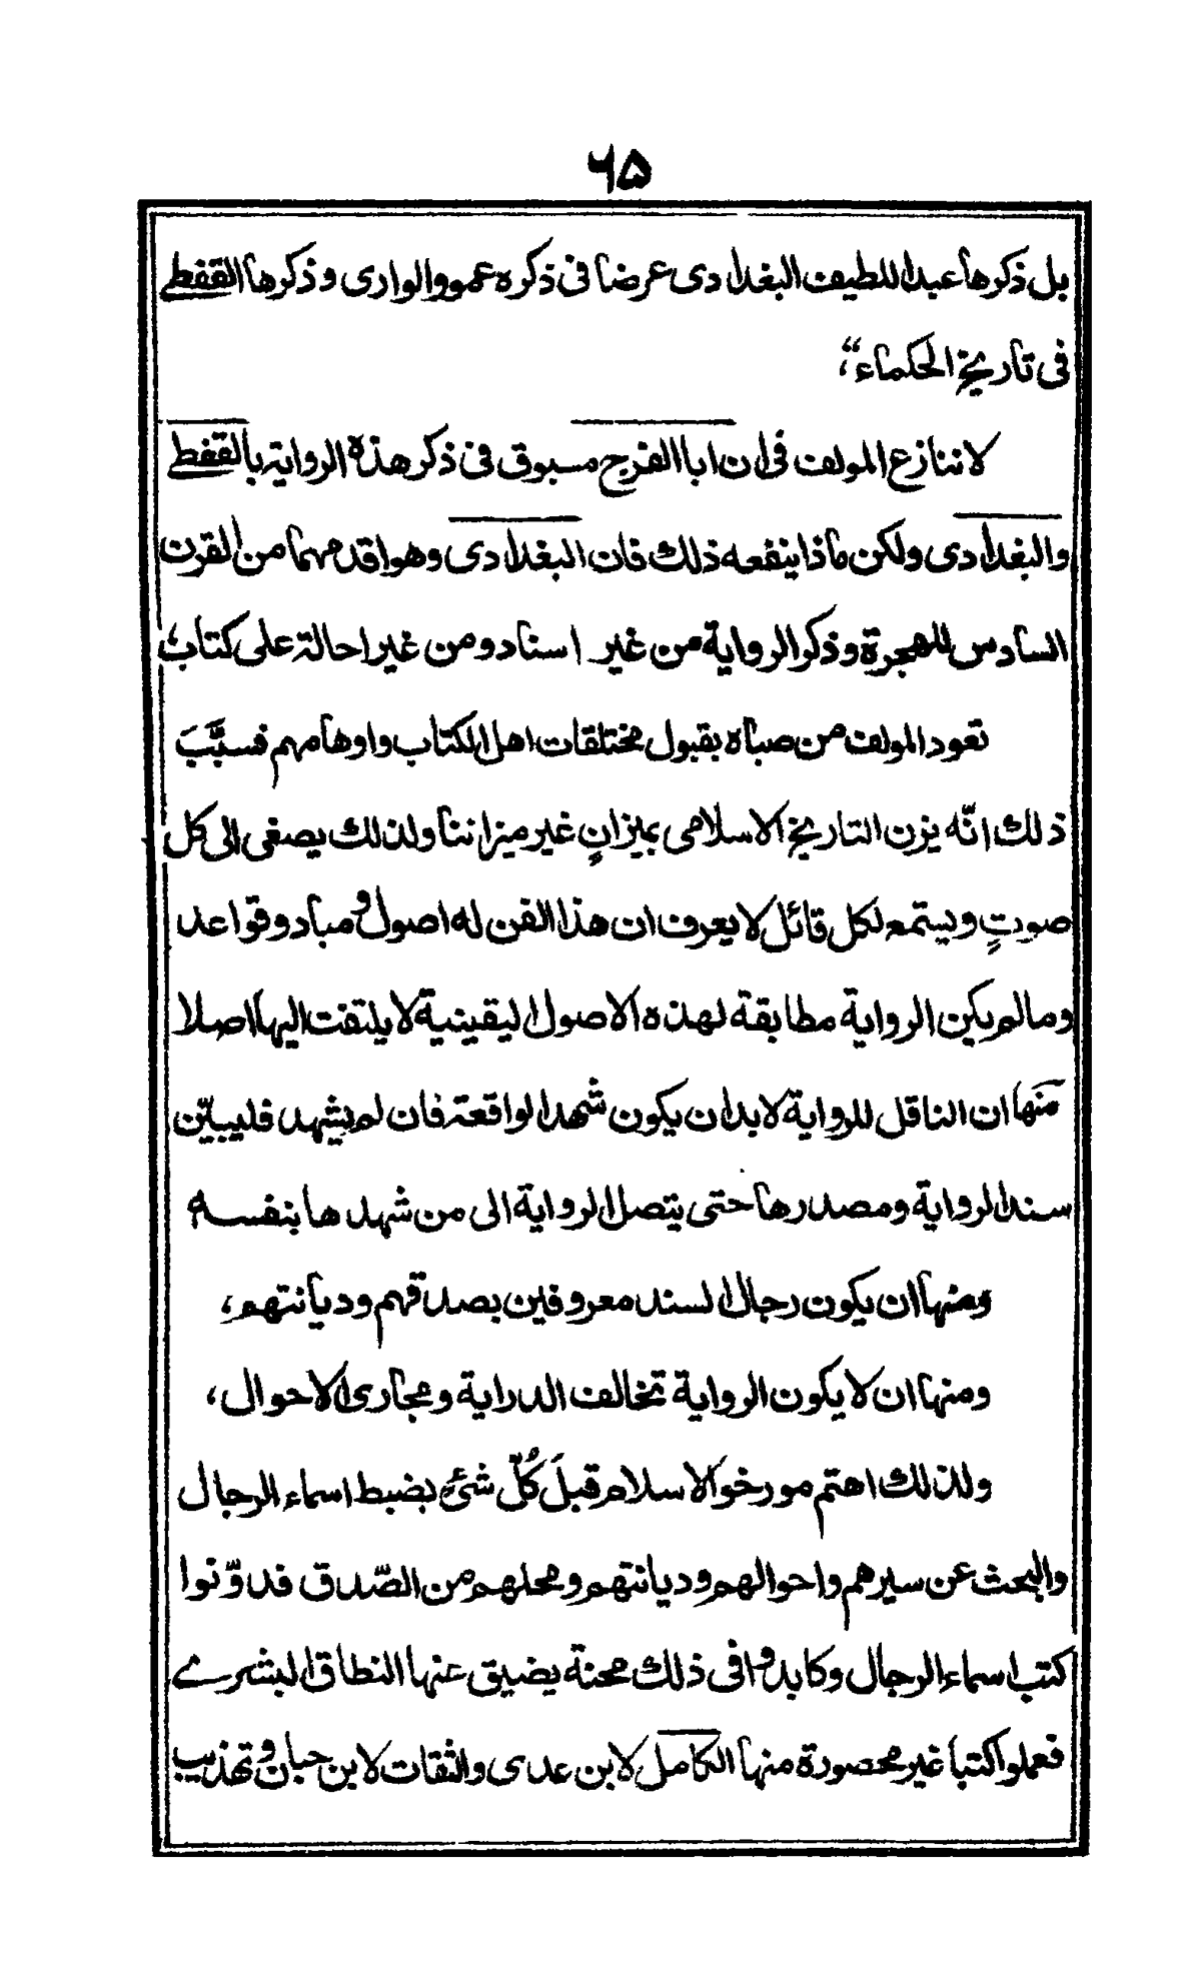 ۶۵
بل ذكرها عبد اللطيف البغدادى عرضا فى ذكره عمود الوارى وذكرها القفطے
فى تاريخ الحكماء“،
لا ننازع المولف فى ان ابا الفرج مسبوق فى ذكر هذه الرواية بالقفطے
والبغدادى ولكن ماذا ينفعه ذلك فان البغدادى وهو اقدمهما من القرن
السادس للهجرة وذكر الرواية من غير اسناد ومن غير احالة على كتاب،
تعود المولف من صباه بقبول مختلقات اهل الكتاب واوهامهم فسبَّبَ
ذلك انّه يزن التاريخ الاسلامى بميزانٍ غير ميزاننا ولذلك يصغى الى كل
صوتٍ ويستمع لكل قائل لا يعرف ان هذا الفن له اصول ومباد وقواعد
وما لم يكن الرواية مطابقة لهذه الاصول اليقينية لا يلتفت اليها اصلا
منها ان الناقل للرواية لابد ان يكون شهد الواقعة فان لم يشهد فليبيّن
سند الرواية ومصدرها حتى يتصل الرواية الى من شهدها بنفسه
ومنها ان يكون رجال السند معروفين بصدقهم وديانتهم،
ومنها ان لا يكون الرواية تخالف الدراية ومجارى الاحوال،
ولذلك اهتم مورخوا الاسلام قبلَ كُلّ شئ بضبط اسماء الرجال
والبحث عن سيرهم واحوالهم وديانتهم ومحلهم من الصّدق فدوّنوا
كتب اسماء الرجال وكابدوا فى ذلك محنة يضيق عنها النطاق البشرے
فعملوا كتبا غير محصورة منها الكامل لابن عدى والثقات لابن حبان وتهذيب